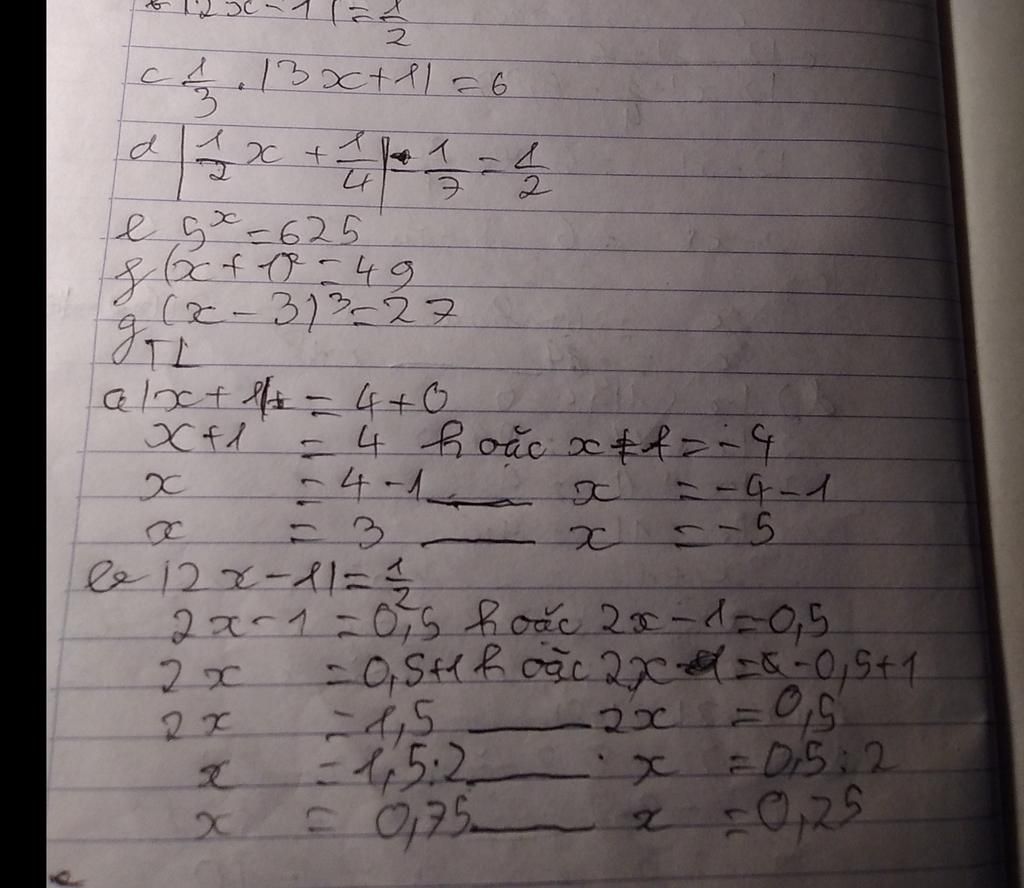 b |2x-1|=1/2
c 1/3 . |3x+1| = 6
d |1/2 x + 1/4| - 1/7 = 1/2
e 5^x = 625
f (x+1)² = 49
g (x-3)³ = 27
TL
a |x+1| = 4+0
x+1 = 4 hoặc x+1 = -4
x = 4-1 — x = -4-1
x = 3 — x = -5
b |2x-1| = 1/2
2x-1 = 0,5 hoặc 2x-1 = 0,5
2x = 0,5+1 hoặc 2x = -0,5+1
2x = 1,5 — 2x = 0,5
x = 1,5:2 — x = 0,5:2
x = 0,75 — x = 0,25